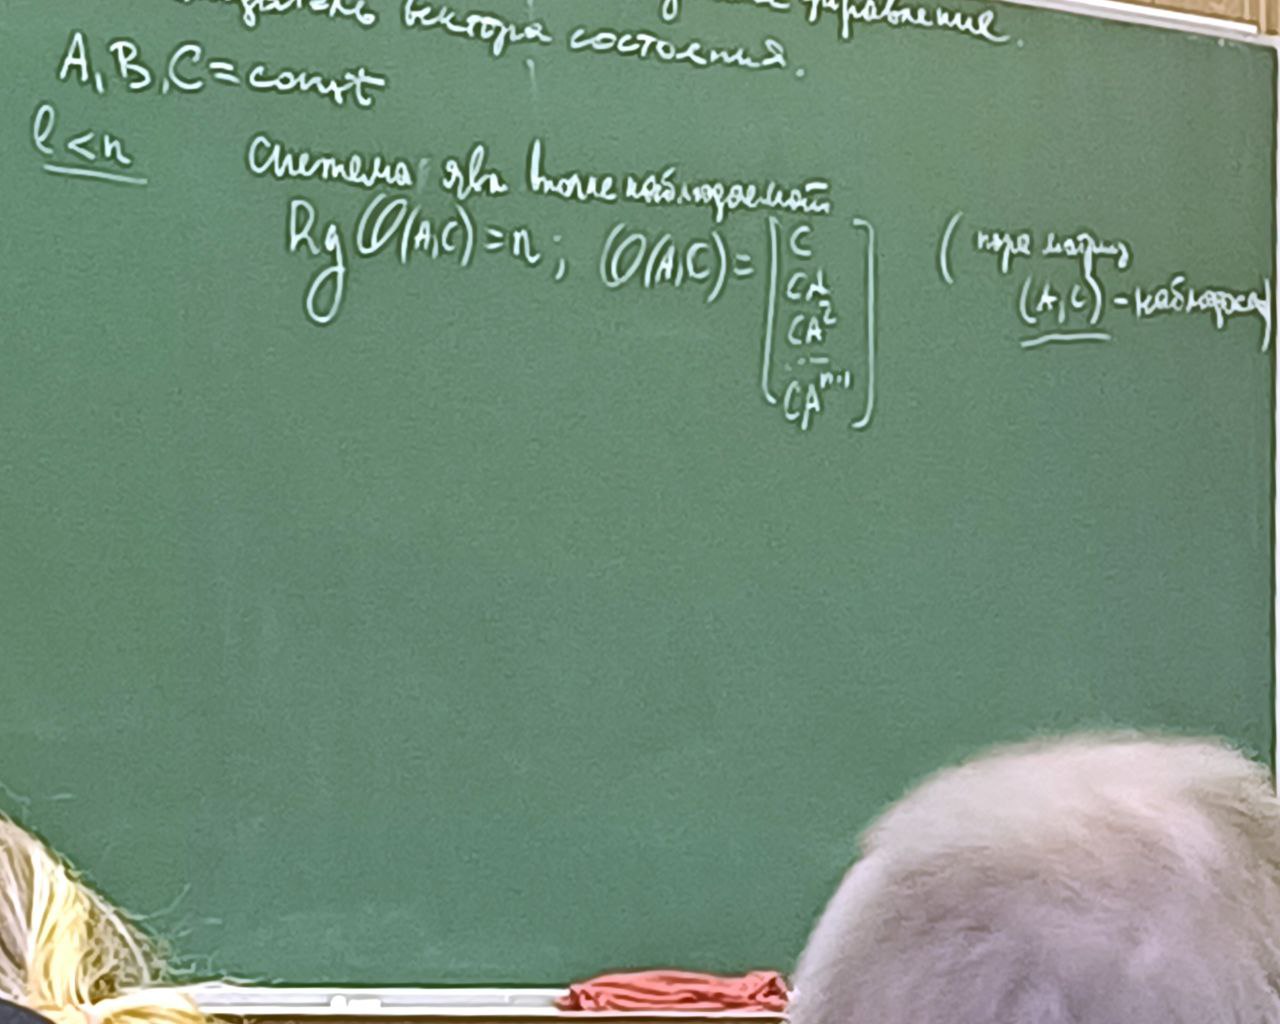 управление.
вектора состояния.
A, B, C = const
l < n
система явл вполне наблюдаемой
Rg O(A,C) = n ; O(A,C) = [ C
CA
CA²
...
CAⁿ⁻¹ ]
( пара матриц
(A,C) - наблюдаема)